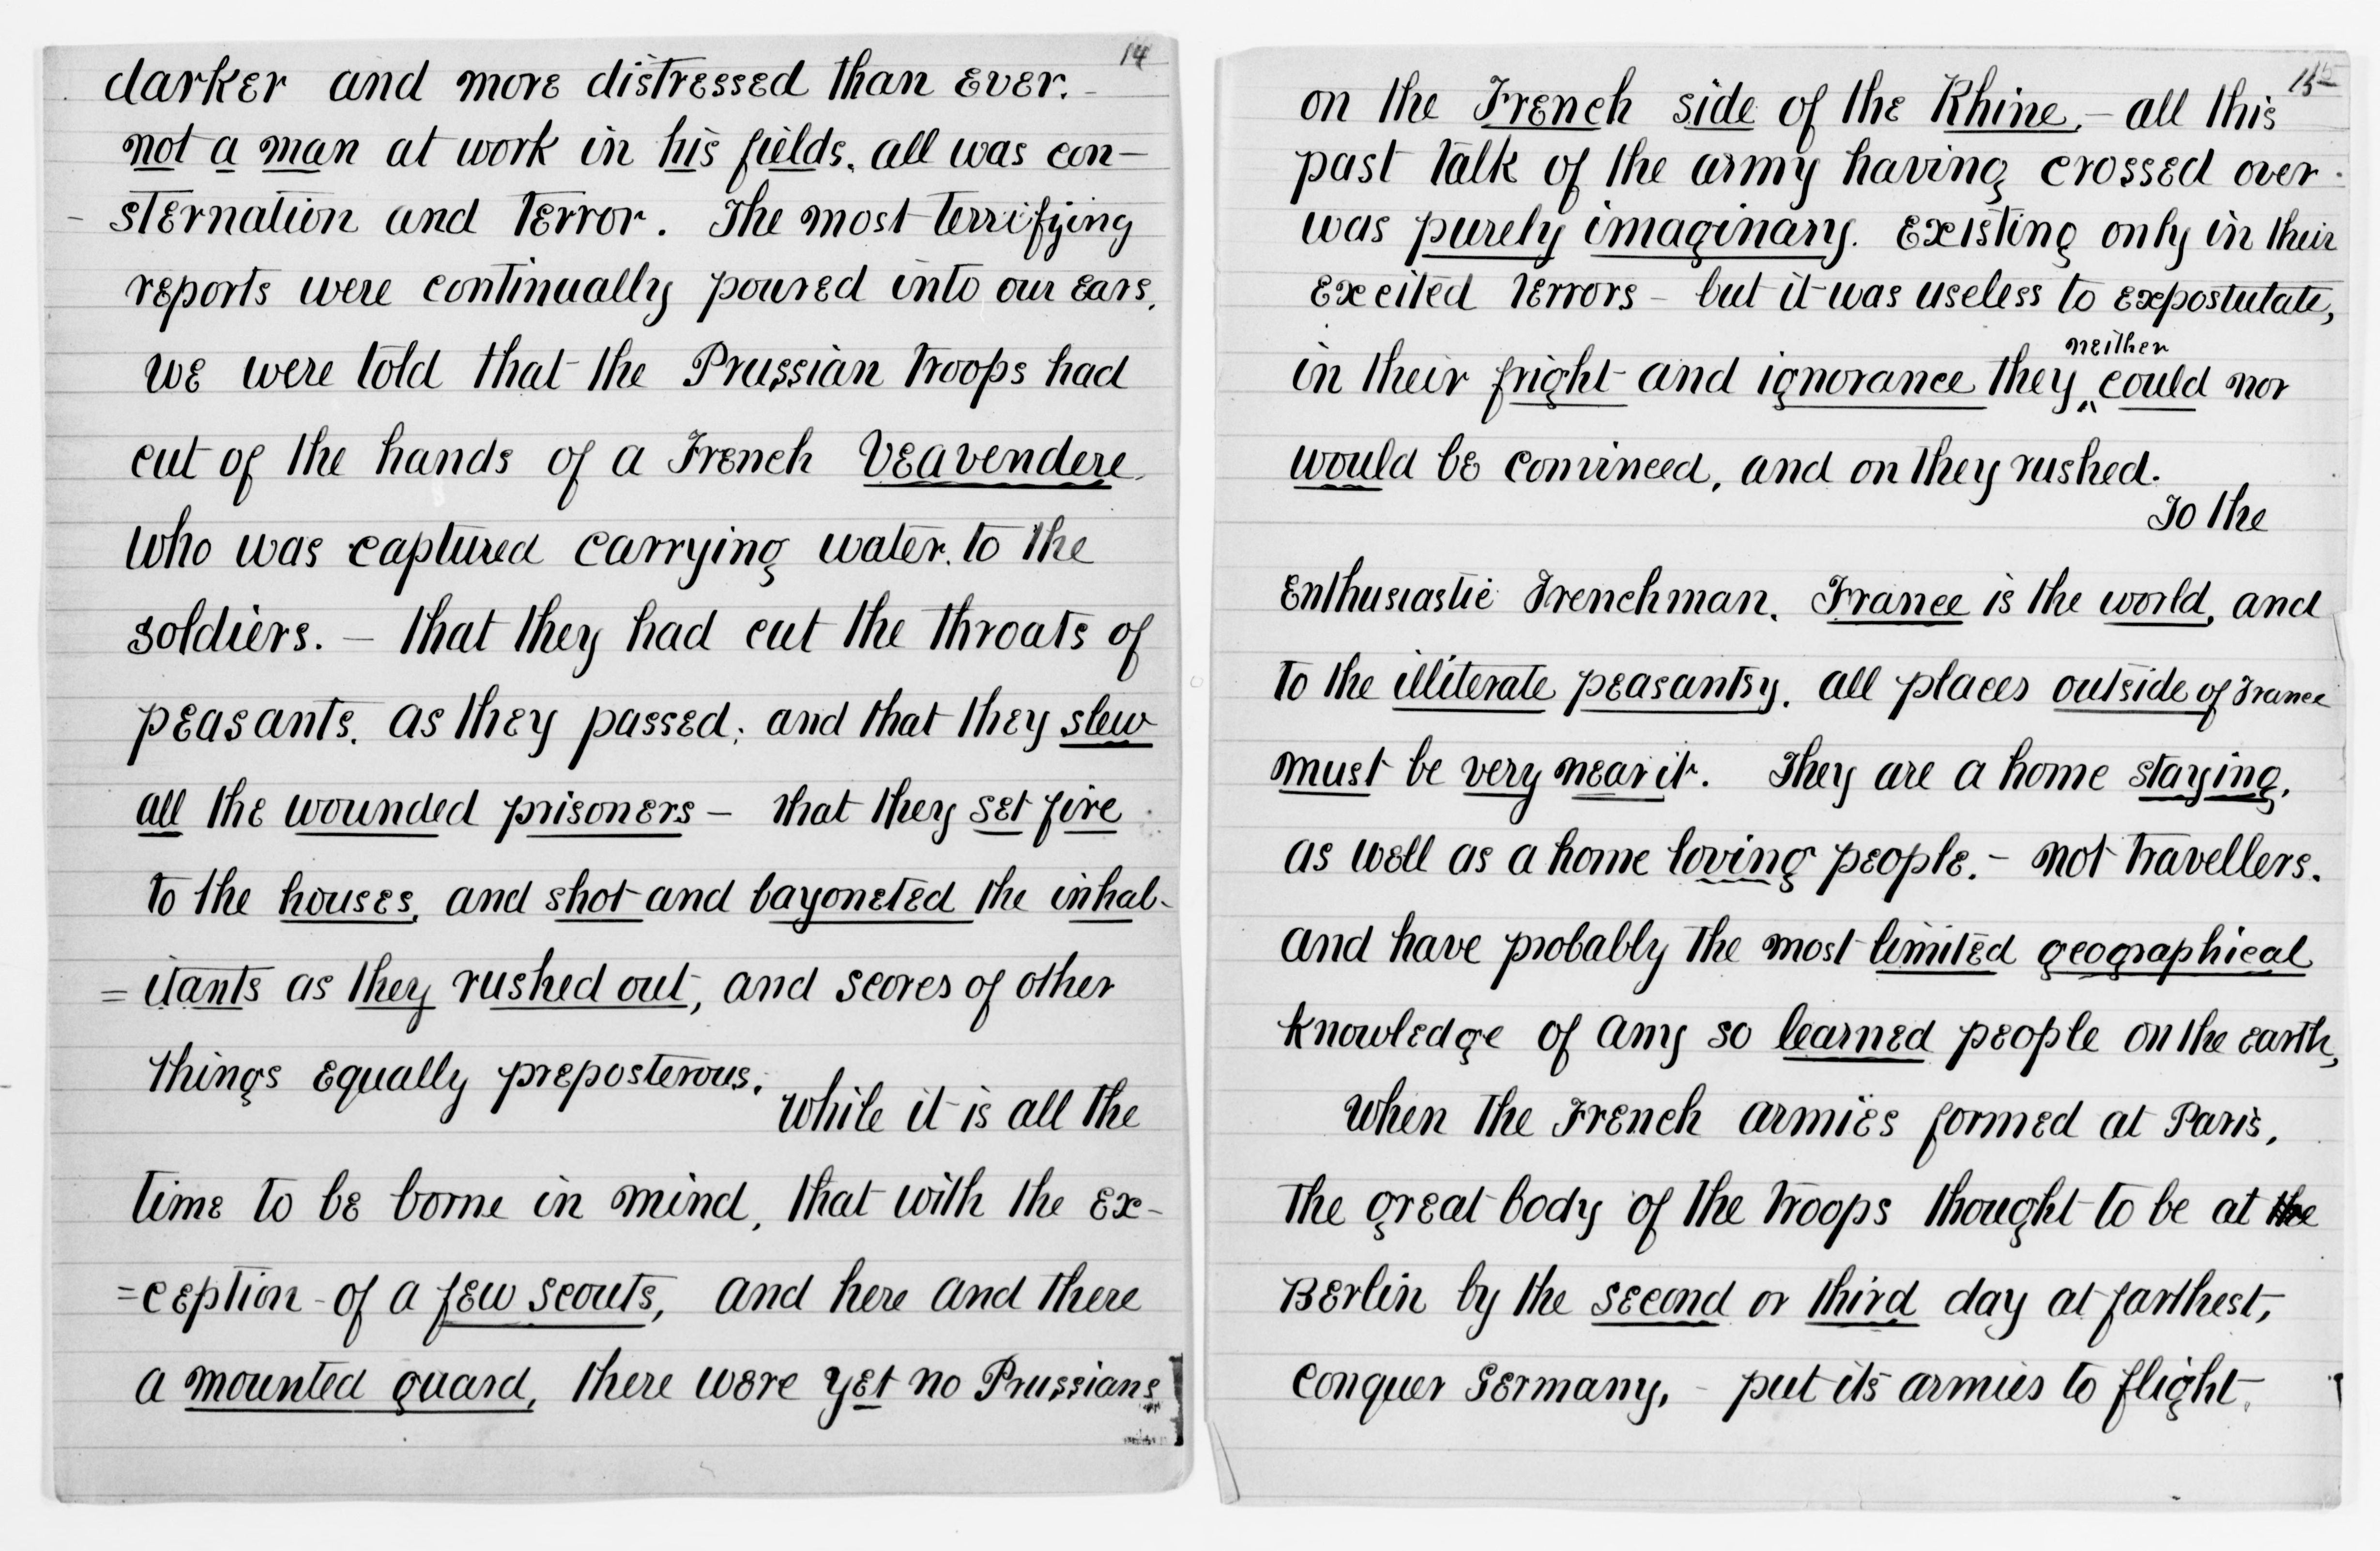 14
darker and more distressed than ever. -
not a man at work in his fields, all was con-
- sternation and terror. The most terrifying
reports were continually poured into our ears.
We were told that the Prussian troops had
cut of the hands of a French Veavendere
who was captured carrying water. to the
soldiers. - that they had cut the throats of
peasants. as they passed; and that they slew
all the wounded prisoners - that they set fire
to the houses, and shot and bayoneted the inhab-
= itants as they rushed out, and scores of other
things equally preposterous.
While it is all the
time to be borne in mind, that with the ex-
=ception - of a few scouts, and here and there
a mounted guard, there were yet no Prussians
15
on the French side of the Rhine. - all this
past talk of the army having crossed over
was purely imaginary. Existing only in their
excited terrors - but it was useless to expostutate,
neither
in their fright and ignorance they ^ could nor
would be convinced, and on they rushed.
To the
Enthusiastic Frenchman. France is the world, and
to the illiterate peasantry. all places outside of France
must be very near it. They are a home staying,
as well as a home loving people. - not travellers.
and have probably the most limited geographical
knowledge of any so learned people on the earth,
When the French armies formed at Paris,
the great body of the troops thought to be at the
Berlin by the second or third day at farthest,
conquer Germany, - put its armies to flight.